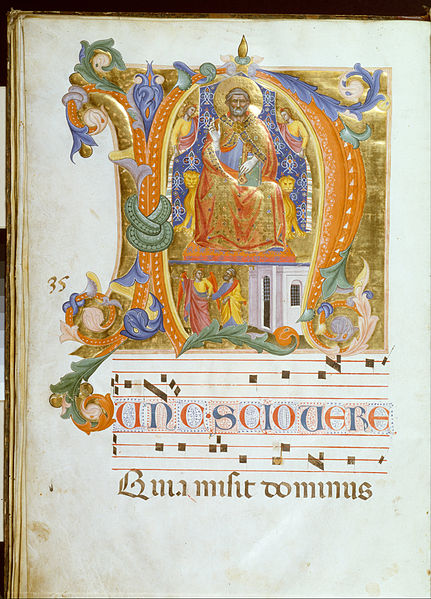 35
NUNC·SCIO VERE
Quia misit dominus